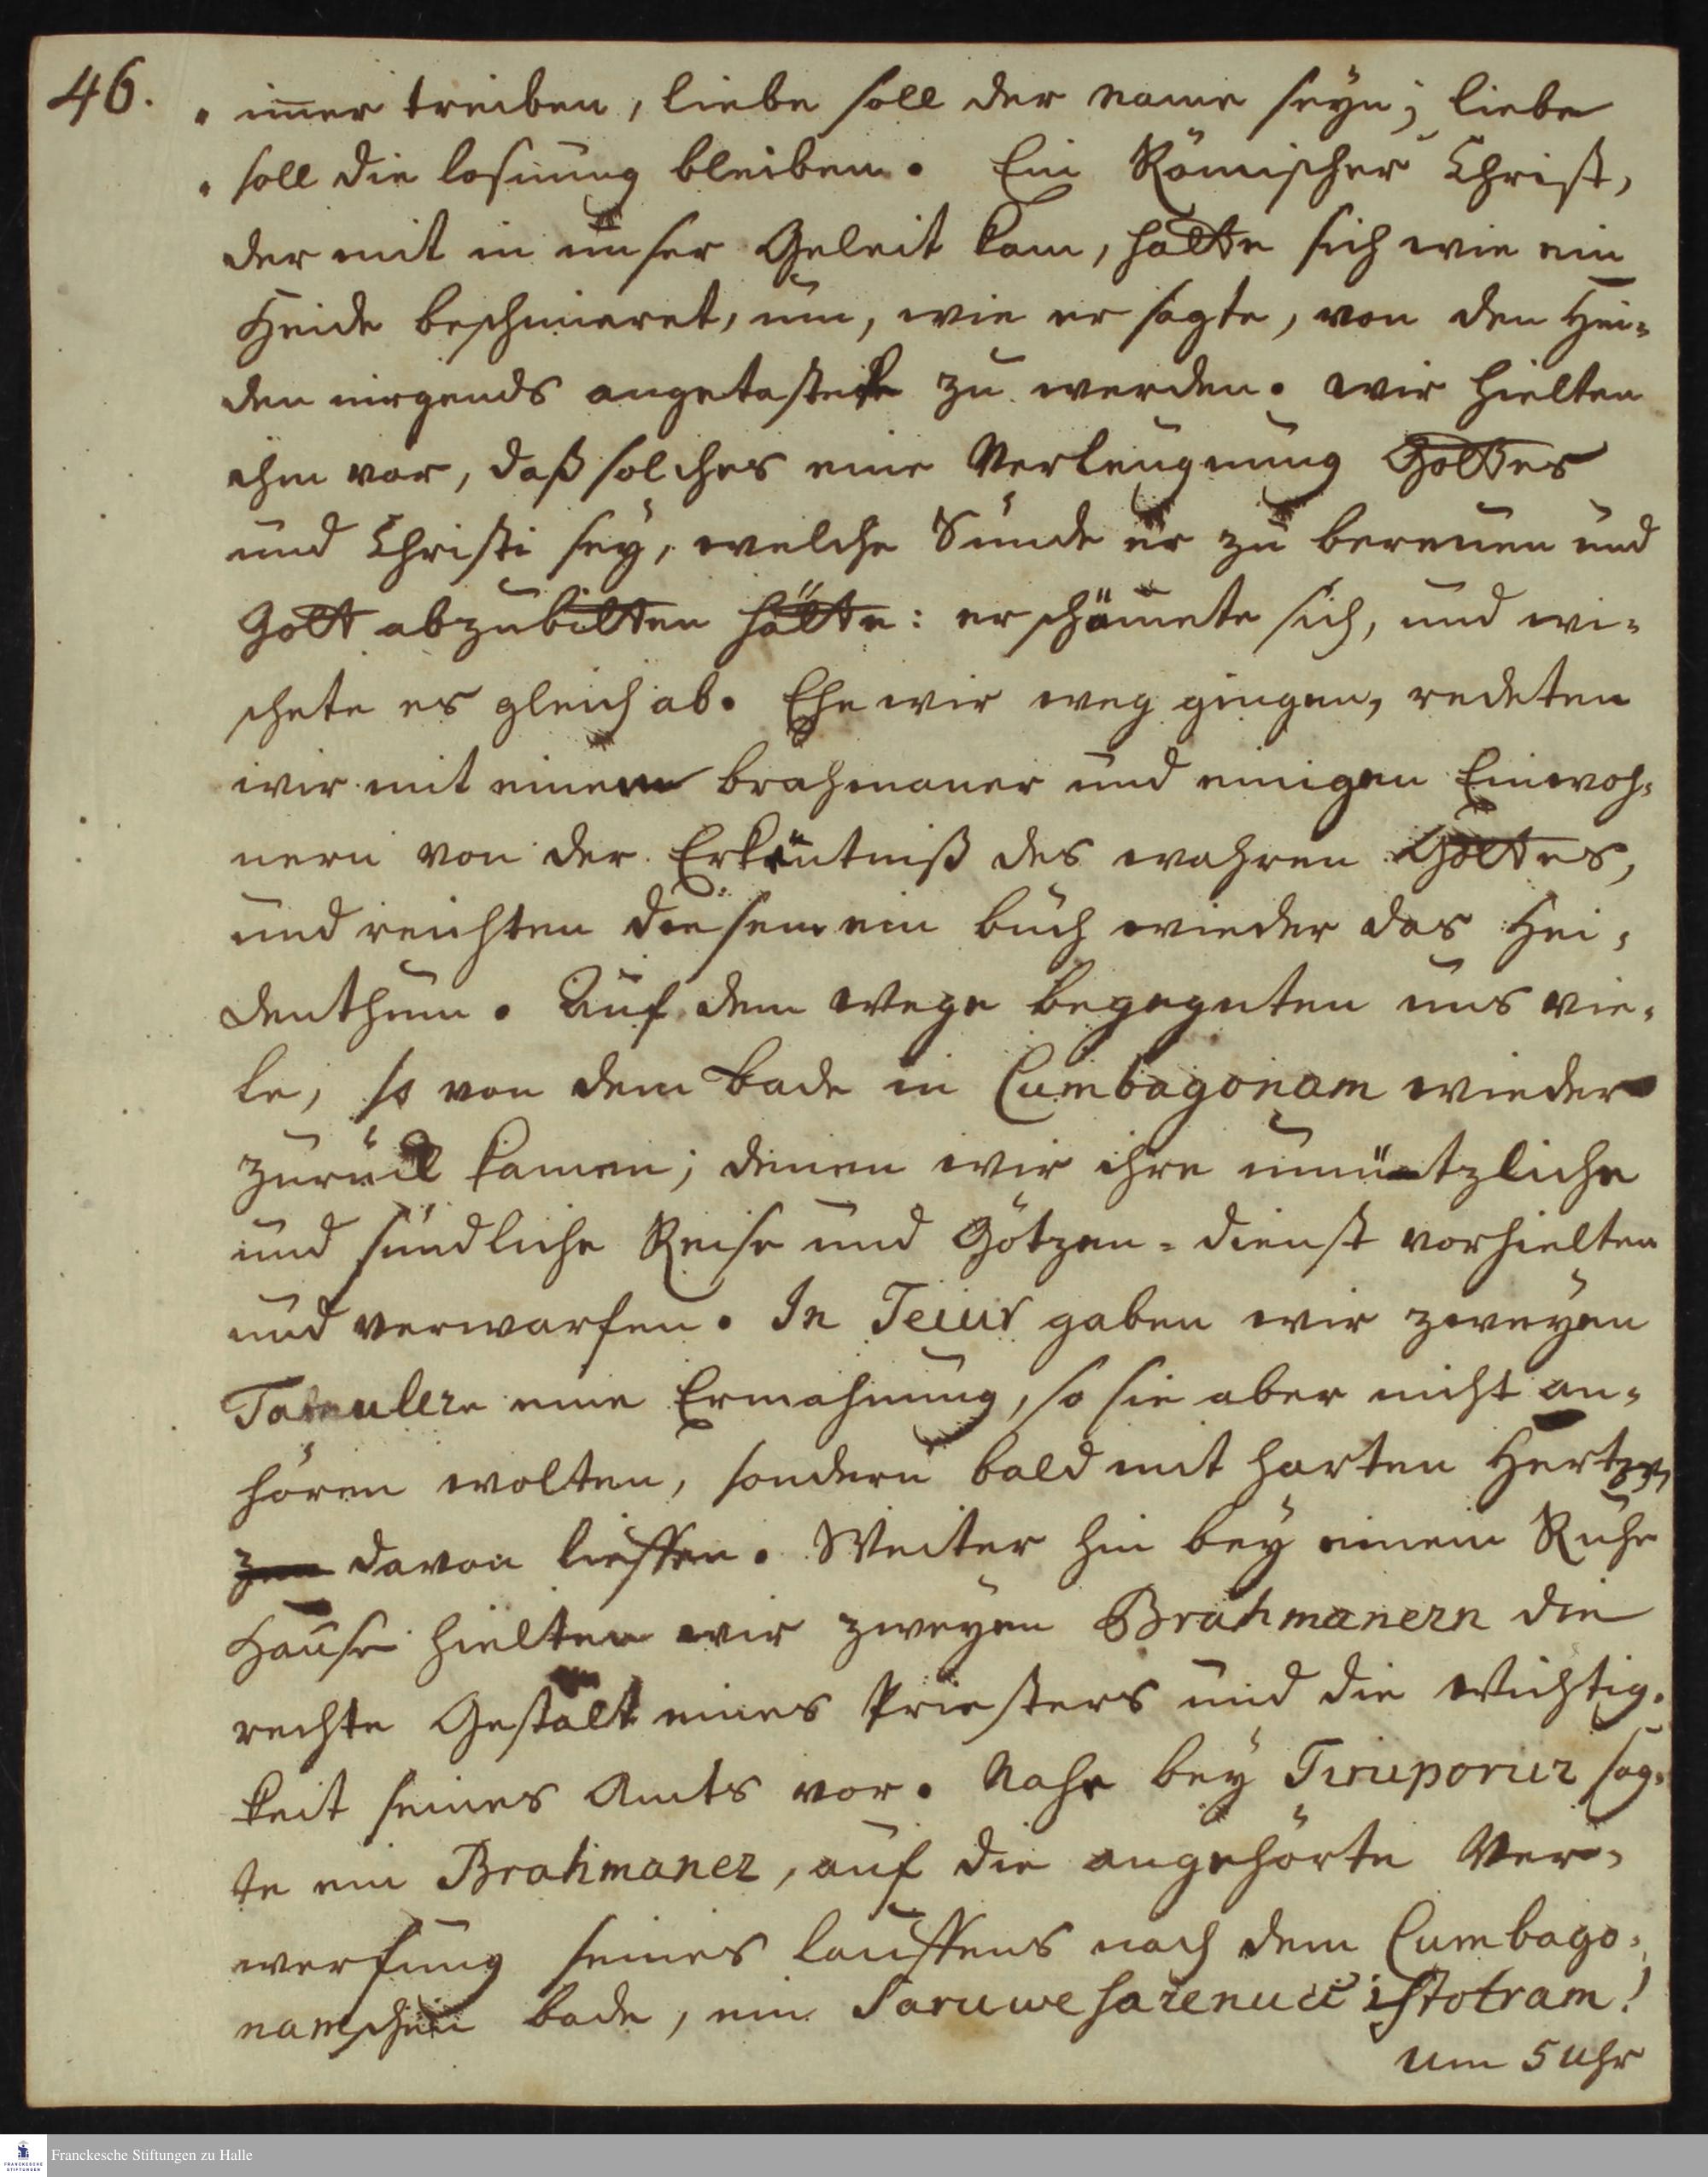 46.
" im̄er treiben, liebe soll der name seyn; liebe
" soll die losuung bleiben. Ein Römischer Christ,
der mit in unser Geleit kam, hatte sich wie ein
Heide beschmieret, um, wie er sagte, von den Hei-
den nirgends angetastet zu werden. wir hielten
ihm vor, daß solches eine Verleugnung Gottes
und Christi sey, welche Sünde er zu bereuen und
Gott abzubitten hätte: er schämete sich, und wi-
schete es gleich ab. Ehe wir weg gingen, redeten
wir mit einem brahmaner und einigen Einwoh-
nern von der Erkäntniß des wahren Gottes,
und reichten diesem ein buch wieder das Hei-
denthum. Auf dem wege begegnten uns vie-
le, so von dem bade in Cumbagonam wieder
zurück kamen; denen wir ihre unnützliche
und sündliche Reise und Götzen-dienst vorhielten
und verwarfen. In Teiur gaben wir zweyen
eine Ermahnung, so sie aber nicht an-
hören wolten, sondern bald mit harten Hertzen
davon lieffen. Weiter hin bey einem Ruhe
Hause hielten wir zweyen Brahmanern die
rechte Gestalt eines Priesters und die Wichtig-
keit seines Amts vor. Nahe bey Tiruporur sag-
te ein Brahmaner, auf die angehörte Ver-
werfung seines lauffens nach dem Cumbago-
namschen bade, ein istotram!
um 5 uhr
Franckesche Stiftungen zu Halle
FRANCKESCHE
STIFTUNGEN